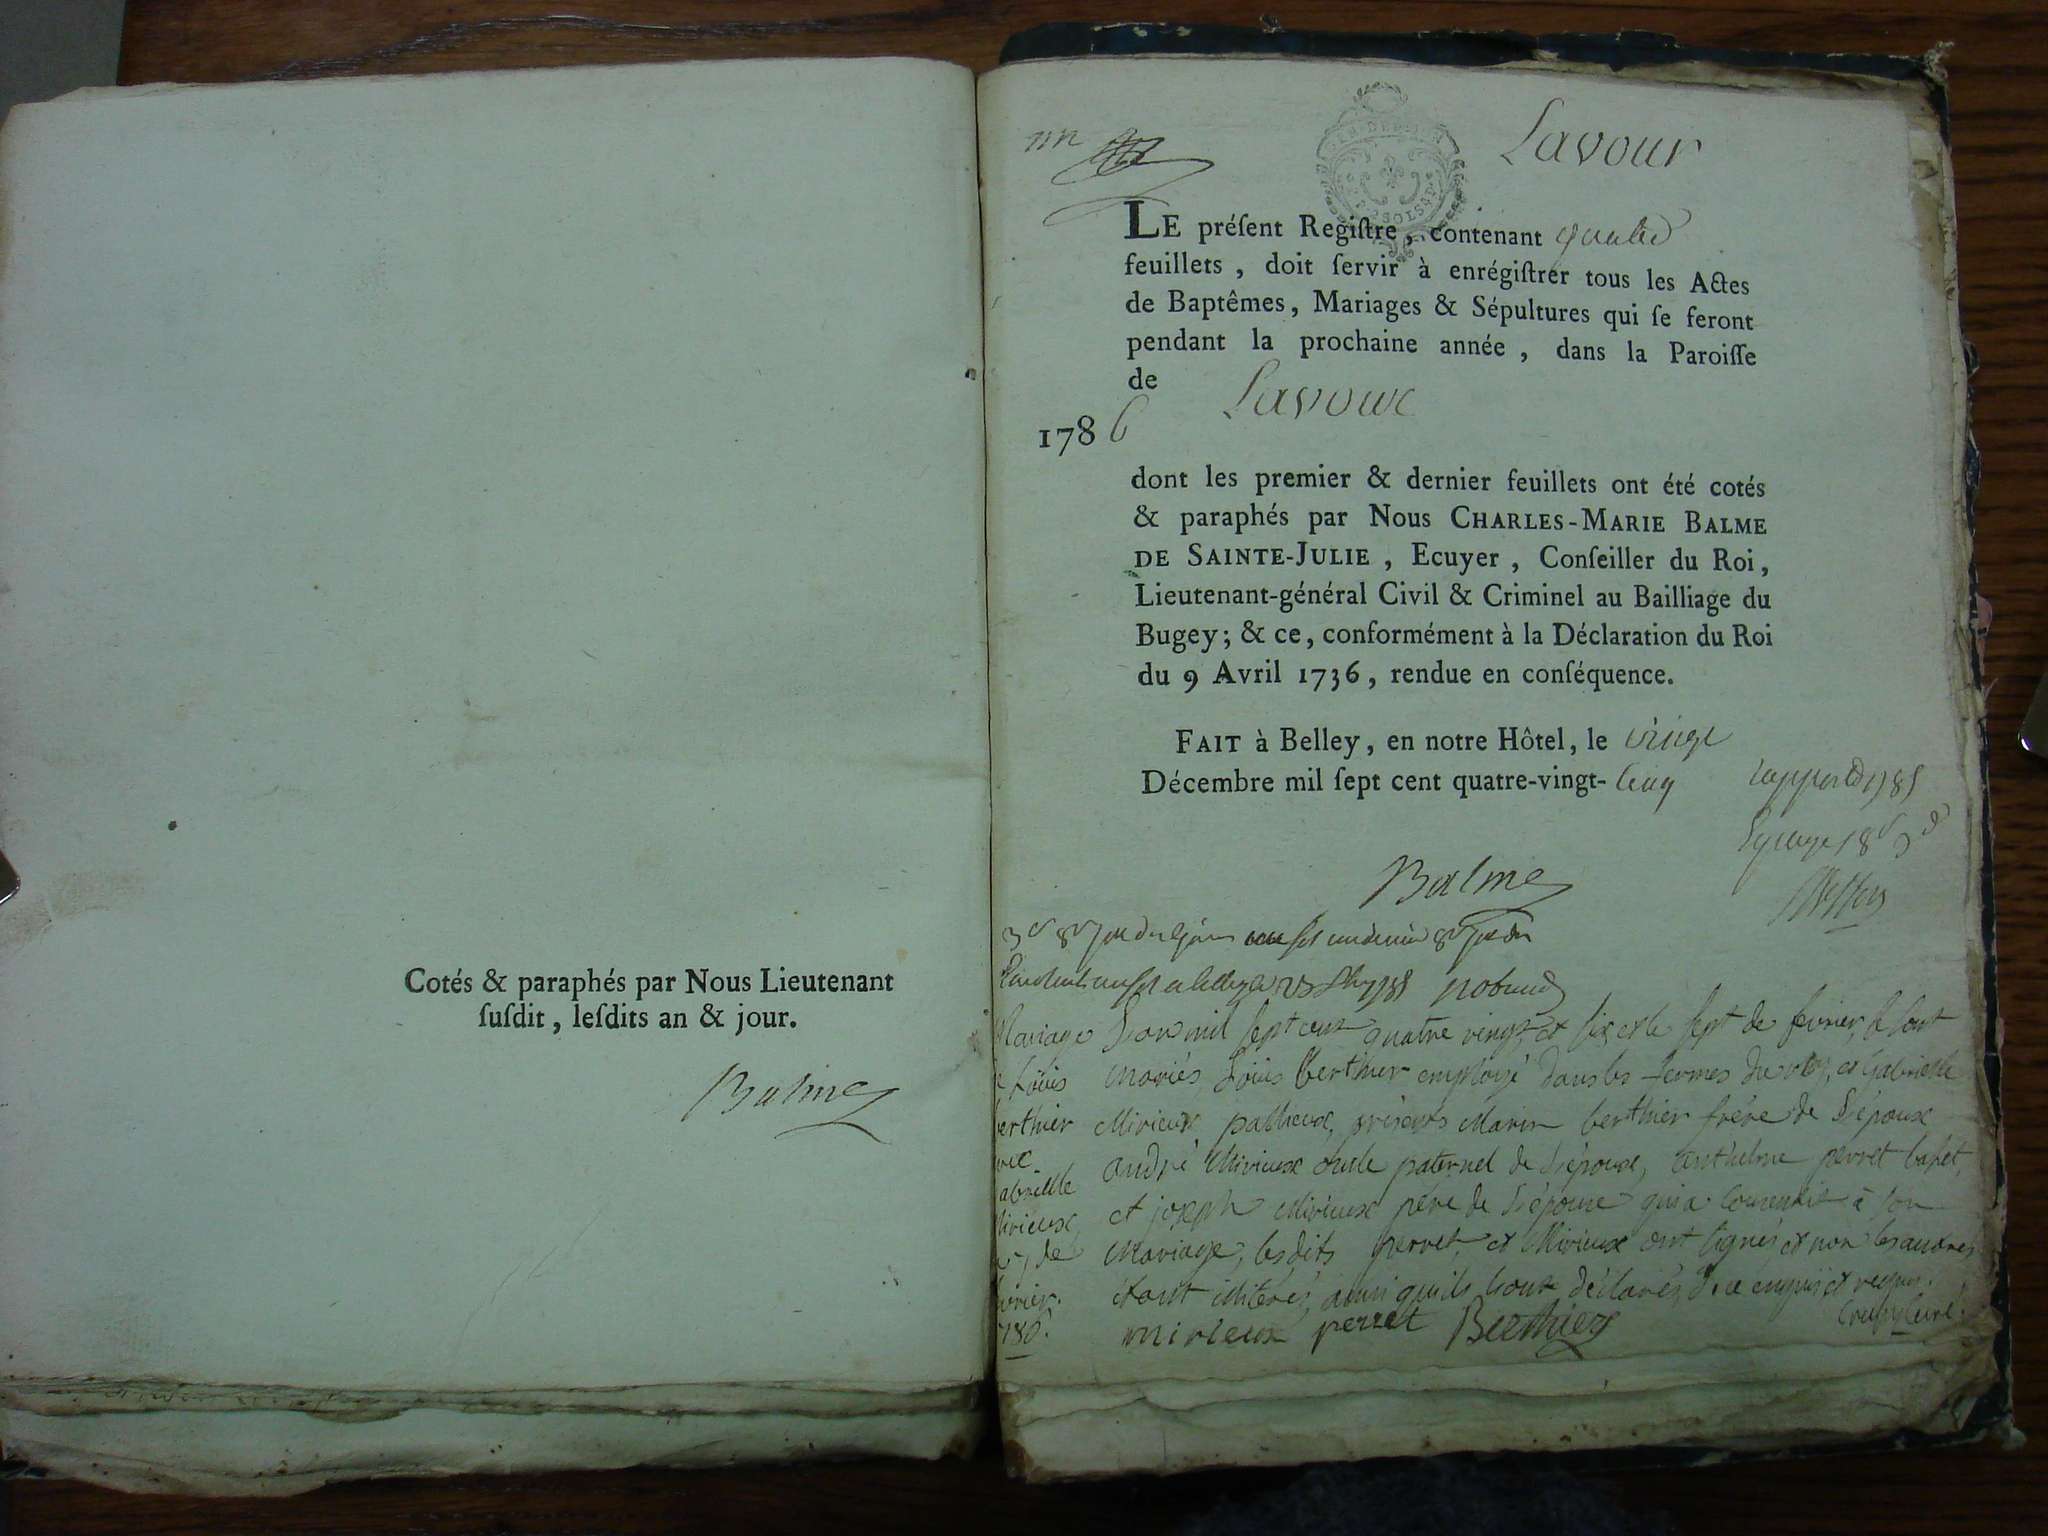 Cotés & paraphés par Nous Lieutenant
ſuſdit, leſdits an & jour.
Balme
un
Lavour
LE préſent Regiſtre, contenant quatre
feuillets, doit ſervir à enrégiſtrer tous les Actes
de Baptêmes, Mariages & Sépultures qui ſe feront
pendant la prochaine année, dans la Paroiſſe
de Lavour
1786
dont les premier & dernier feuillets ont été cotés
& paraphés par Nous CHARLES-MARIE BALME
DE SAINTE-JULIE, Ecuyer, Conſeiller du Roi,
Lieutenant-général Civil & Criminel au Bailliage du
Bugey; & ce, conformément à la Déclaration du Roi
du 9 Avril 1736, rendue en conſéquence.
FAIT à Belley, en notre Hôtel, le vingt
Décembre mil ſept cent quatre-vingt-cinq
Balme
Mariage
Louis
berthier
avec
gabrielle
Mirieux
de
fevrier.
1786.
L'an mil sept cent quatre vingt et six et le sept de fevrier, se sont
mariés, Louis berthier employé dans les fermes du roy, et Gabrielle
Mirieux présents Marin berthier frère de L'époux
andré Mirieux oncle paternel de L'épouse, anthelme perret
et joseph Mirieux père de L'épouse qui a consentie à son
Mariage, lesdits perret, et Mirieux ont signés et non les autres
étant illiterés, ainsi quils l'ont déclarés, de ce enquis et requis.
mirieux perret Berthier